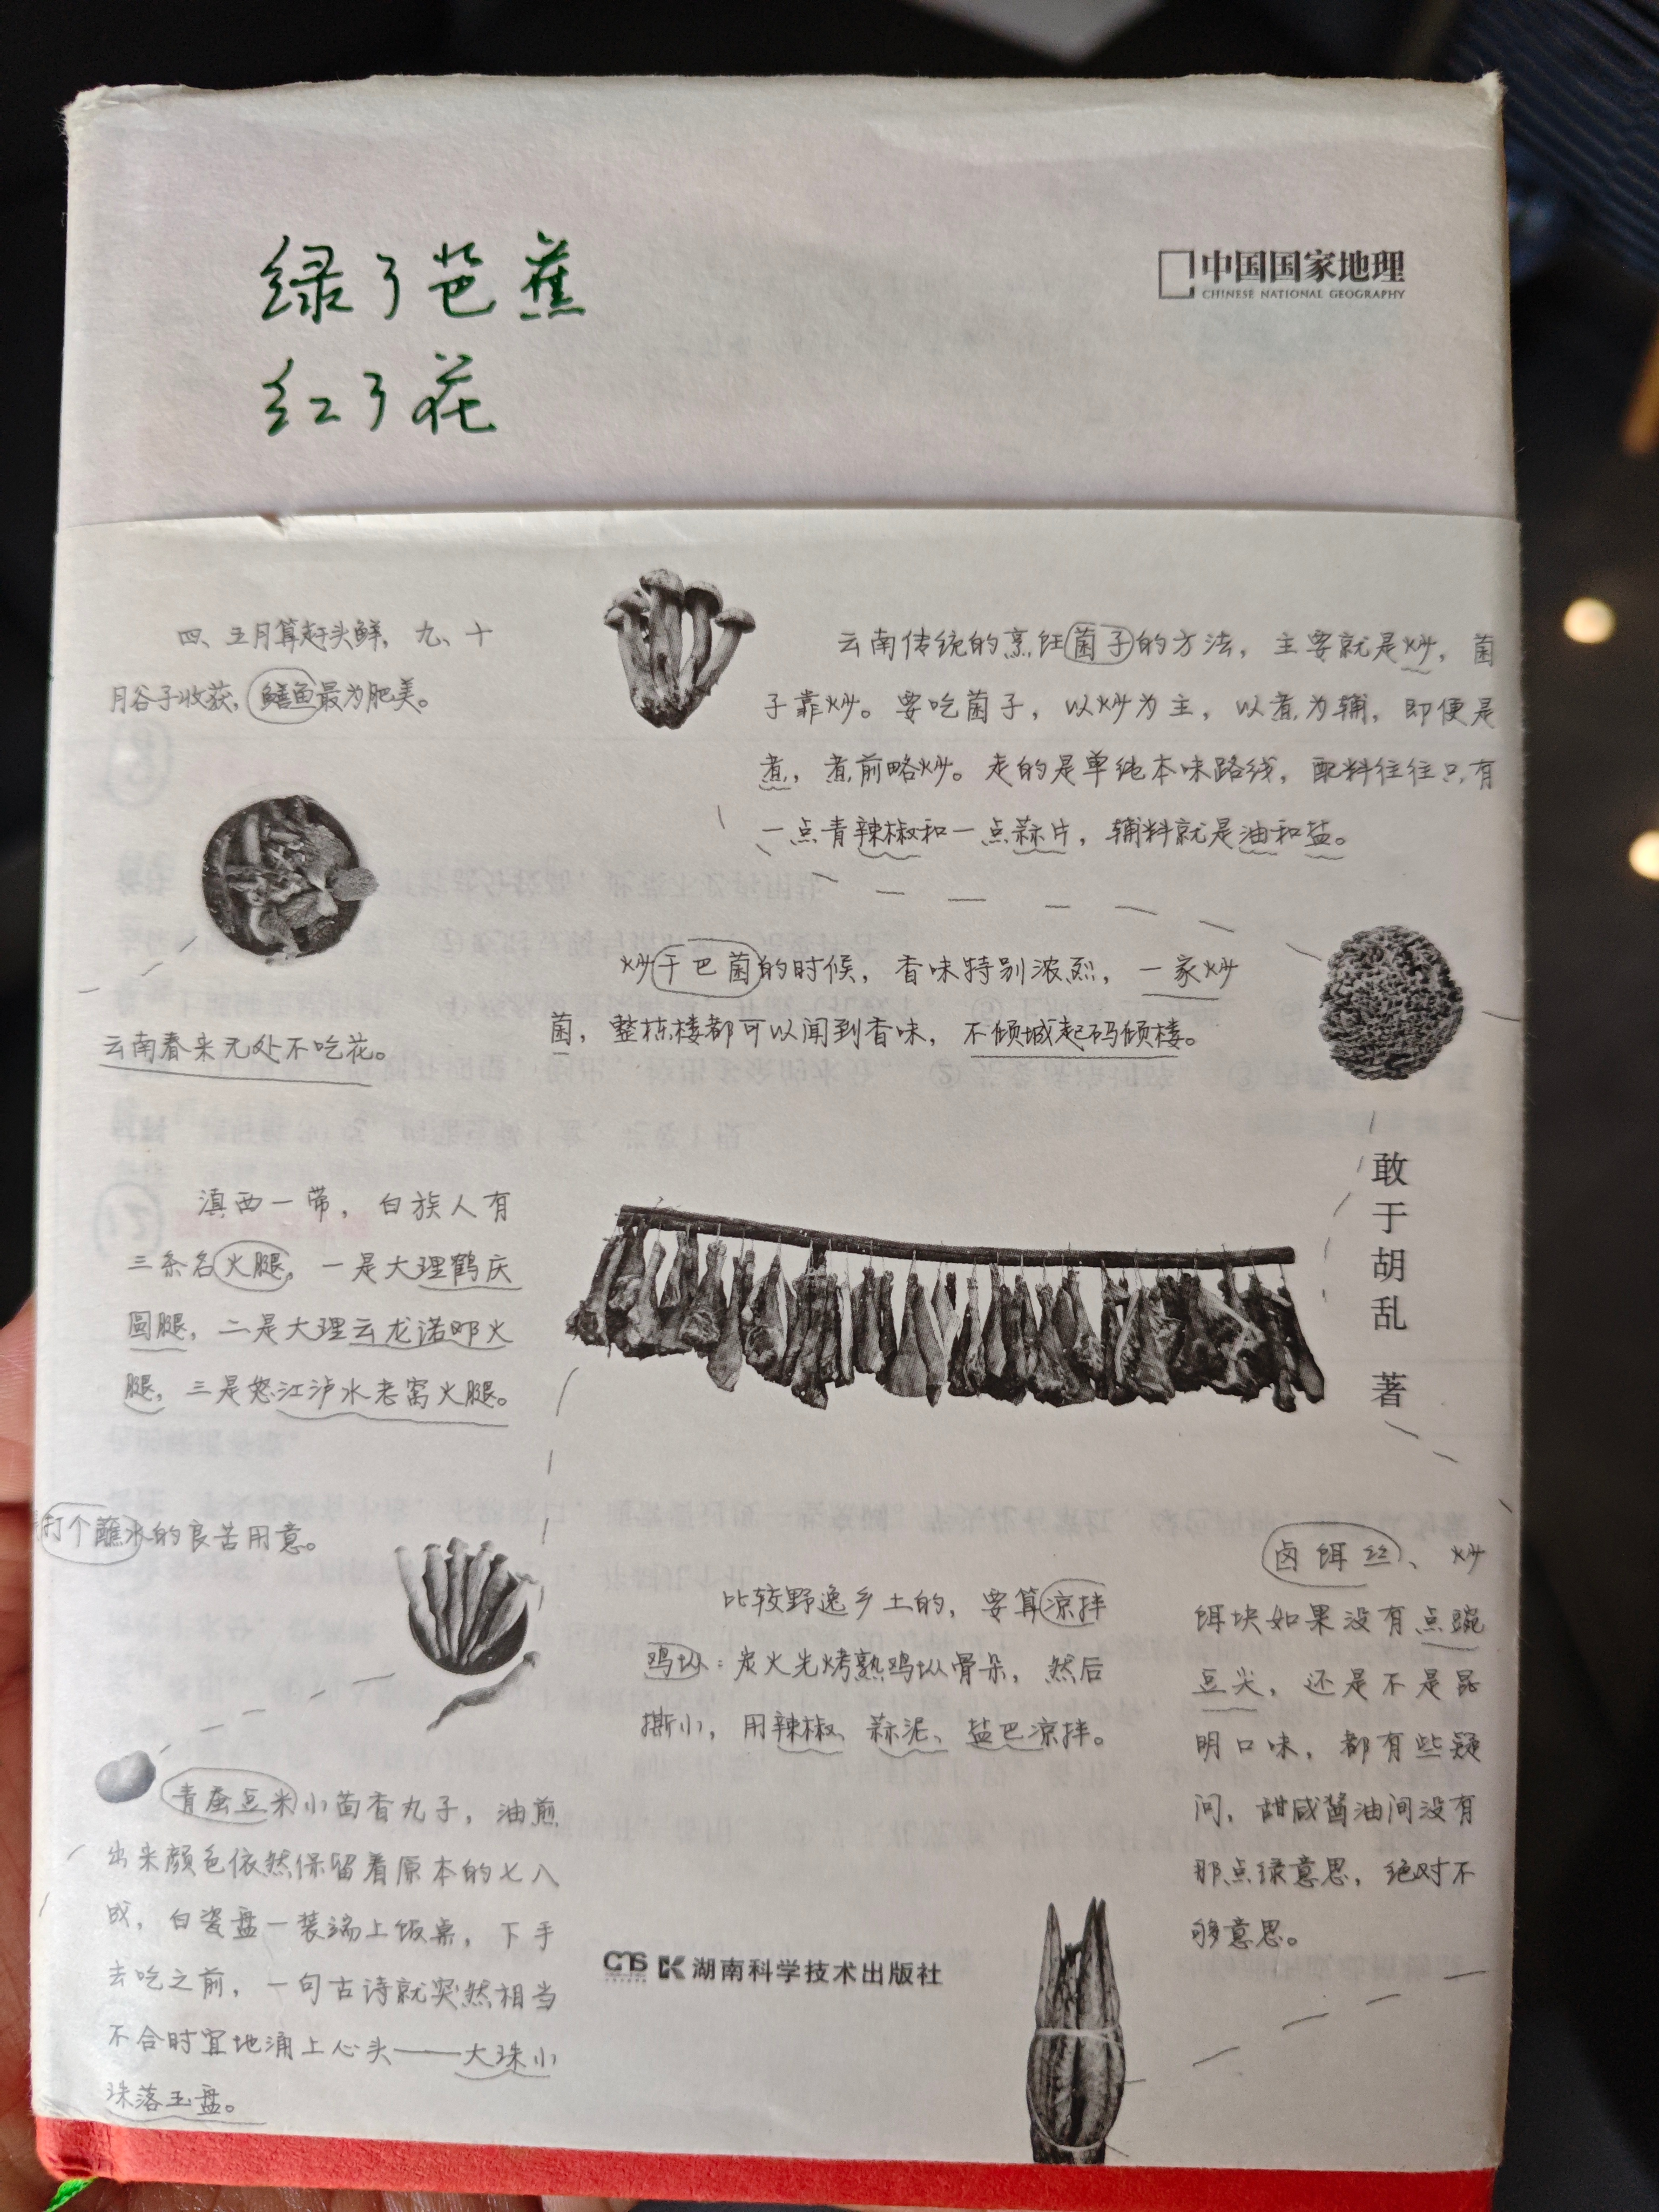 绿了芭蕉
红了花
中国国家地理
CHINESE NATIONAL GEOGRAPHY
四、五月算赶头鲜，九、十
月谷子收获，鳝鱼最为肥美。
云南传统的烹饪菌子的方法，主要就是炒，菌
子靠炒。要吃菌子，以炒为主，以煮为辅，即便是
煮，煮前略炒。走的是单纯本味路线，配料往往只有
一点青辣椒和一点蒜片，辅料就是油和盐。
炒干巴菌的时候，香味特别浓烈，一家炒
菌，整栋楼都可以闻到香味，不倾城起码倾楼。
云南春来无处不吃花。
敢于胡乱 著
滇西一带，白族人有
三条名火腿，一是大理鹤庆
圆腿，二是大理云龙诺邓火
腿，三是怒江泸水老窝火腿。
打个蘸水的良苦用意。
比较野逸乡土的，要算凉拌
鸡枞：炭火先烤熟鸡枞骨朵，然后
撕小，用辣椒、蒜泥、盐巴凉拌。
卤饵丝、炒
饵块如果没有点豌
豆尖，还是不是昆
明口味，都有些疑
问，甜咸酱油间没有
那点绿意思，绝对不
够意思。
青蚕豆米小茴香丸子，油煎
出来颜色依然保留着原本的七八
成，白瓷盘一装端上饭桌，下手
去吃之前，一句古诗就突然相当
不合时宜地涌上心头——大珠小
珠落玉盘。
湖南科学技术出版社